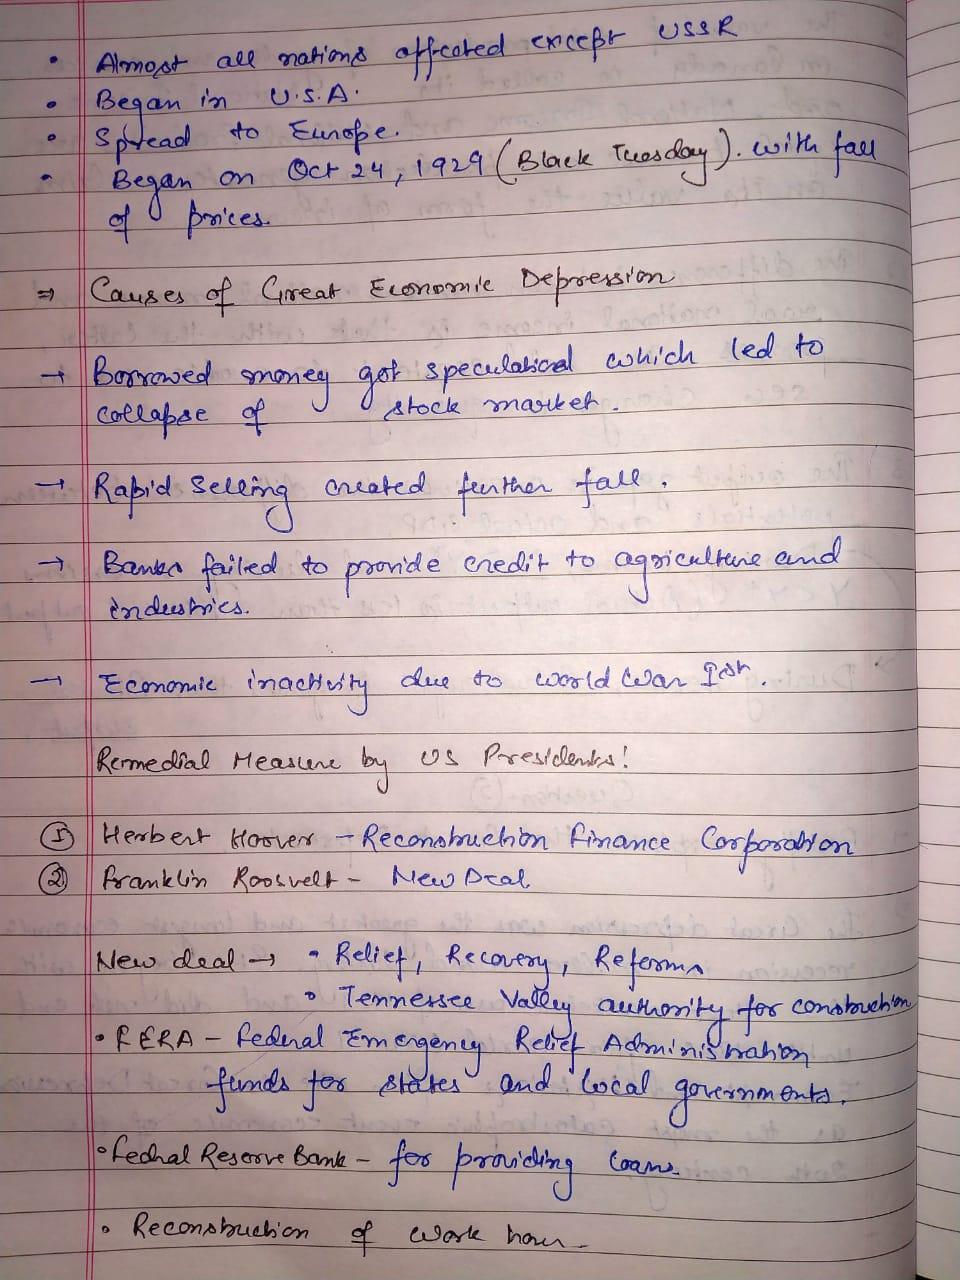 • Almost all nations affected except USSR
• Began in U.S.A.
• Spread to Europe.
• Began on Oct 24, 1929 (Black Tuesday). with fall
of prices.
⇒ Causes of Great Economic Depression
→ Borrowed money got speculational which led to
collapse of stock market.
→ Rapid Selling created further fall.
→ Banks failed to provide credit to agriculture and
industries.
→ Economic inactivity due to world War Ist.
Remedial Measure by US Presidents!
① Herbert Hoover - Reconstruction finance Corporation
② Franklin Roosvelt - New Deal
New deal → • Relief, Recovery, Reforms
• Tennessee Valley authority for construction
• FERA - Federal Emergency Relief Administration
funds for states and local governments.
• Fedral Reserve Bank - for providing loans.
• Reconstruction of work hour.